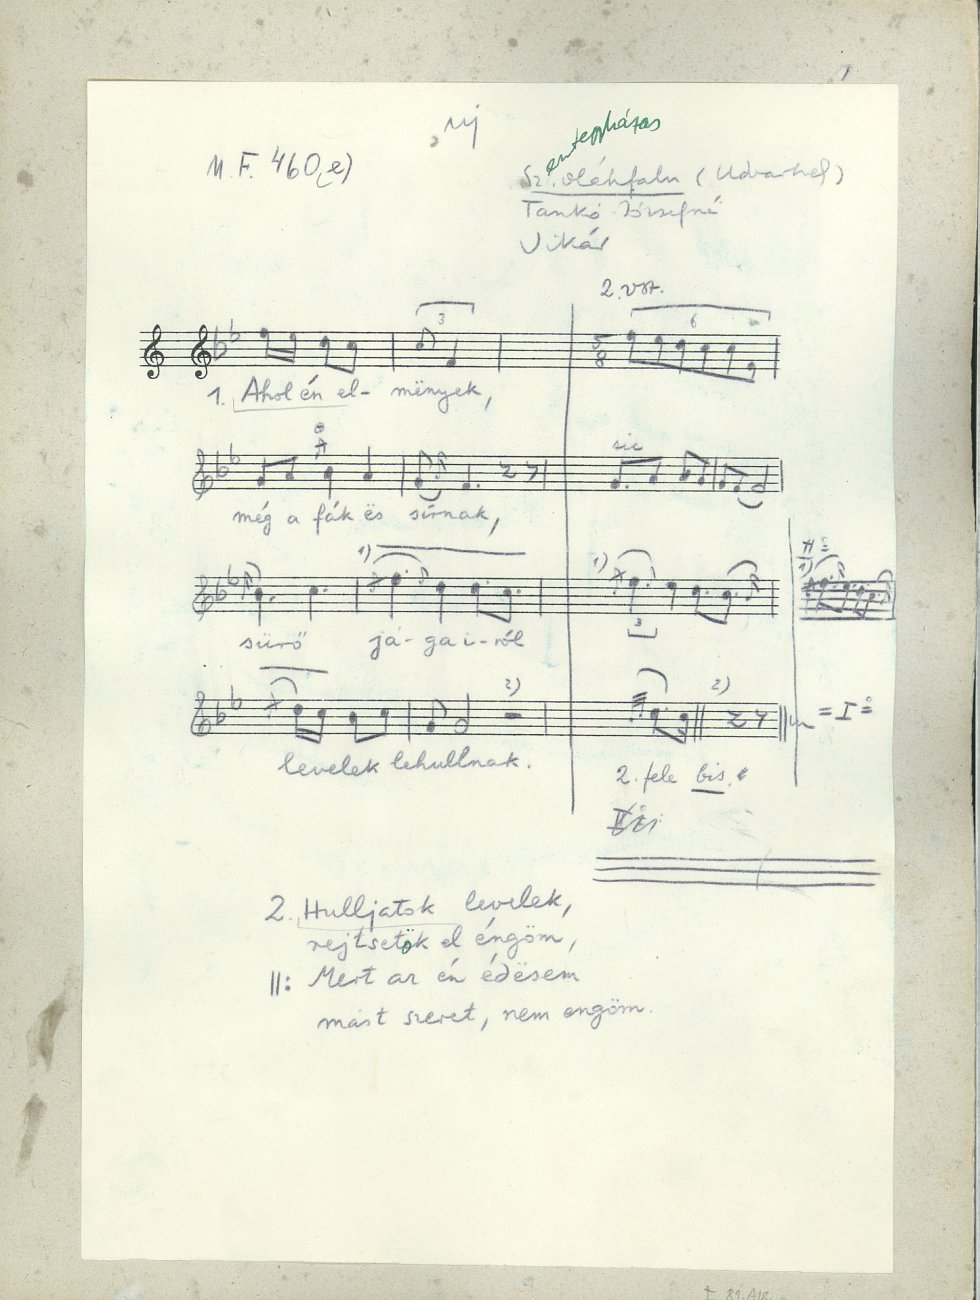 új
M. F. 460 e)
entegyházas
Sz. oláhfalu (Udvarhely)
Tankó Józsefné
Vikár
2. vsz.
3
6
5
8
1. Ahol én el- mënyek,
sic
még a fák ës sírnak,
1)
1)
1)
3
sürö já- ga i- ról
2)
2)
= I =
levelek lehullnak.
2. fele bis.
2. Hulljatok levelek,
rejtsetök el éngöm,
||: Mert az én édësem
mást szeret, nem engöm.